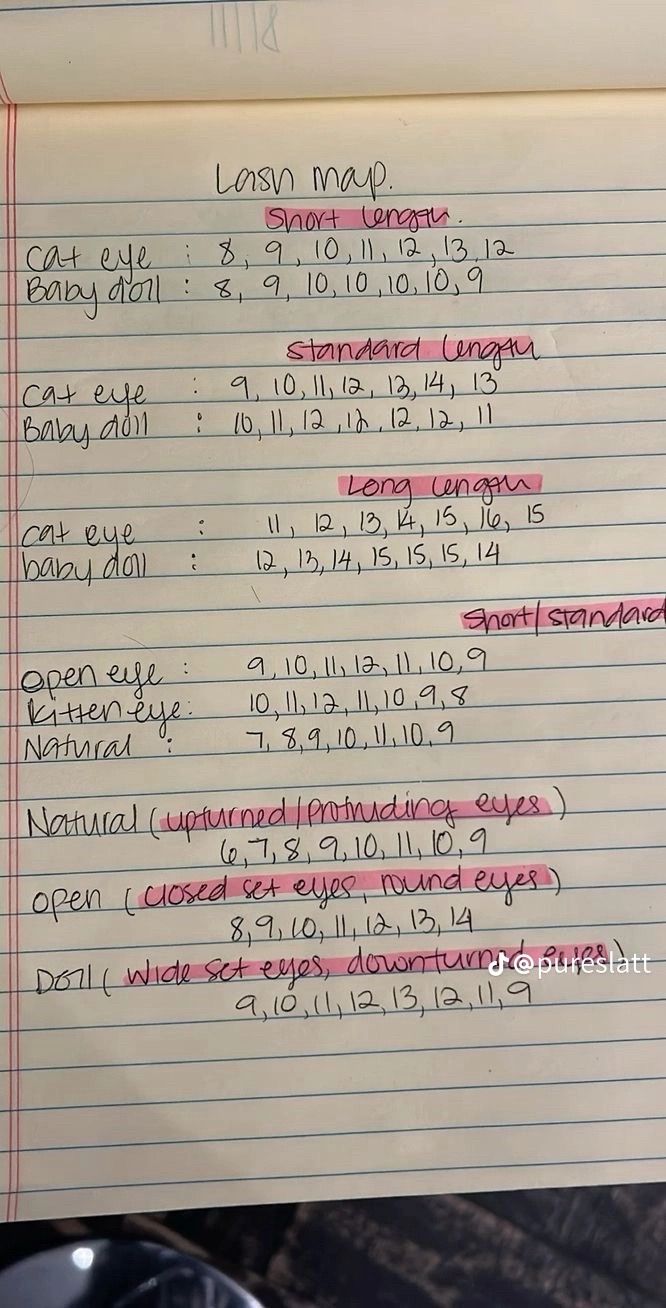 Lash map.
Short length.
Cat eye : 8, 9, 10, 11, 12, 13, 12
Baby doll : 8, 9, 10, 10, 10, 10, 9
Standard length
Cat eye : 9, 10, 11, 12, 13, 14, 13
Baby doll : 10, 11, 12, 12, 12, 12, 11
Long length
Cat eye : 11, 12, 13, 14, 15, 16, 15
baby doll : 12, 13, 14, 15, 15, 15, 14
Short/standard
Open eye : 9, 10, 11, 12, 11, 10, 9
Kitten eye: 10, 11, 12, 11, 10, 9, 8
Natural : 7, 8, 9, 10, 11, 10, 9
Natural (upturned/protruding eyes)
6, 7, 8, 9, 10, 11, 10, 9
Open (closed set eyes, round eyes)
8, 9, 10, 11, 12, 13, 14
Doll (Wide set eyes, downturned eyes)
@pureslatt
9, 10, 11, 12, 13, 12, 11, 9